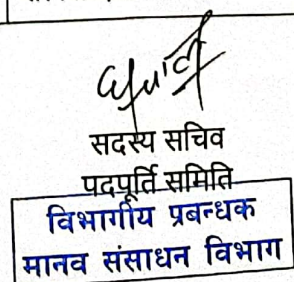 सदस्य सचिव
पदपूर्ति समिति
विभागीय प्रबन्धक
मानव संसाधन विभाग